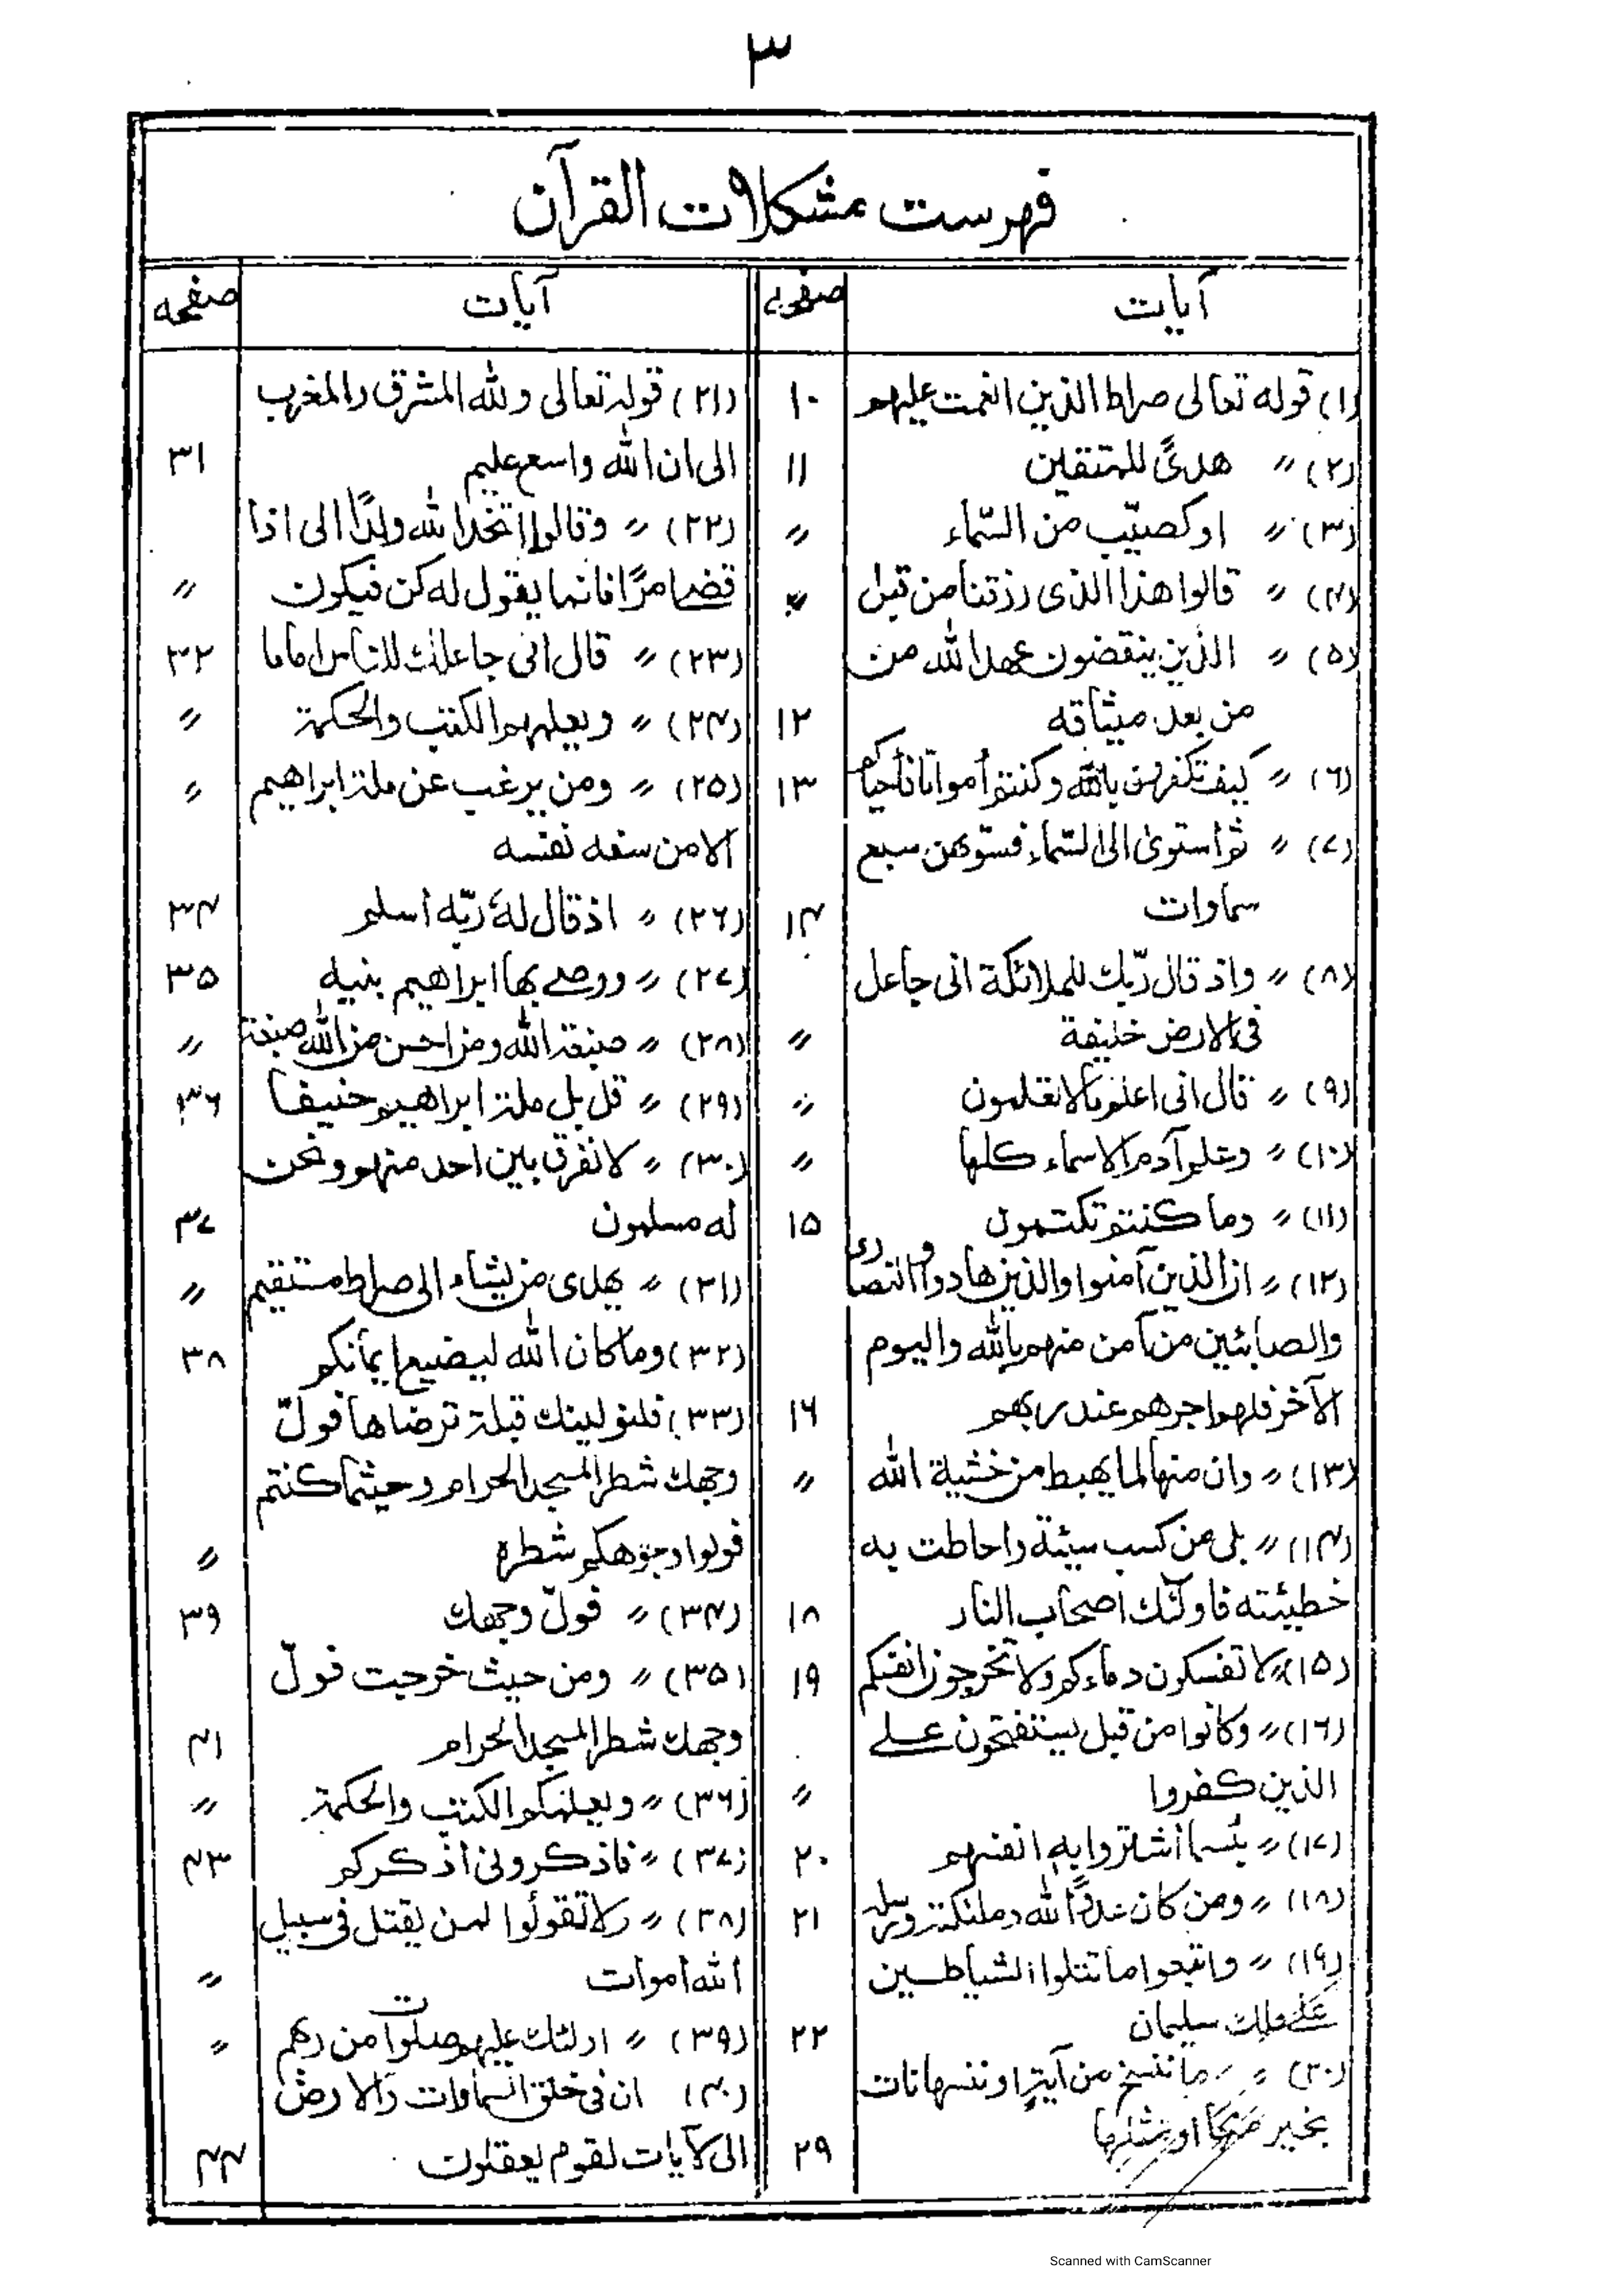 ٣
فهرست مشكلات القرآن
آيات
صفحه
(١) قوله تعالى صراط الذين انعمت عليهم ١٠
(٢) 〃 هدىً للمتقين ١١
(٣) 〃 اوكصيّب من السّماء 〃
(٤) 〃 قالوا هذا الذى رزقنا من قبل 〃
(٥) 〃 الذين ينقضون عهد الله من
من بعد ميثاقه ١٢
(٦) 〃 كيف تكفرون بالله وكنتم أمواتا فأحياكم ١٣
(٧) 〃 ثم استوىٰ الى السّماء فسوّٰهن سبع
سماوات ١٤
(٨) 〃 واذ قال ربّك للملائكة انى جاعل
فى الارض خليفة 〃
(٩) 〃 قال انى اعلم مالا تعلمون 〃
(١٠) 〃 وعلم آدم الاسماء كلها 〃
(١١) 〃 وما كنتم تكتمون ١٥
(١٢) 〃 ان الذين آمنوا والذين هادوا والنصارى
والصابئين من آمن منهم بالله واليوم
الآخر فلهم اجرهم عند ربهم ١٦
(١٣) 〃 وان منها لما يهبط من خشية الله 〃
(١٤) 〃 بلى من كسب سيئة واحاطت به
خطيئته فاولٰئك اصحاب النار ١٨
(١٥) 〃 لا تفسكون دماءكم ولا تخرجون انفسكم ١٩
(١٦) 〃 وكانوا من قبل يستفتحون على
الذين كفروا 〃
(١٧) 〃 بئسما اشتروا به انفسهم ٢٠
(١٨) 〃 ومن كان عدوًّا لله وملئكته ورسله ٢١
(١٩) 〃 واتبعوا ما تتلوا الشياطين
على ملك سليمان ٢٢
(٢٠) 〃 ما ننسخ من آية او ننسها نات
بخير منها او مثلها ٢٩
آيات
صفحه
(٢١) قوله تعالى ولله المشرق والمغرب
الى ان الله واسع عليم ٣١
(٢٢) 〃 وقالوا اتخذ الله ولدًا الى اذا
قضىٰ امرًا فانما يقول له كن فيكون 〃
(٢٣) 〃 قال انى جاعلك للناس اماما ٣٢
(٢٤) 〃 ويعلمهم الكتٰب والحكمة 〃
(٢٥) 〃 ومن يرغب عن ملة ابراهيم 〃
الا من سفه نفسه
(٢٦) 〃 اذ قال لهٗ ربّه أسلم ٣٤
(٢٧) 〃 ووصى بها ابراهيم بنيه ٣٥
(٢٨) 〃 صبغة الله ومن احسن من الله صبغة 〃
(٢٩) 〃 قل بل ملة ابراهيم حنيفا ٣٦
(٣٠) 〃 لا نفرق بين احد منهم ونحن
له مسلمون ٣٧
(٣١) 〃 يهدى من يشاء الى صراط مستقيم 〃
(٣٢) وما كان الله ليضيع ايمانكم ٣٨
(٣٣) فلنولينك قبلة ترضاها فولّ
وجهك شطر المسجد الحرام وحيثما كنتم
فولوا وجوهكم شطره 〃
(٣٤) 〃 فولّ وجهك ٣٩
(٣٥) 〃 ومن حيث خرجت فولّ
وجهك شطر المسجد الحرام ٤١
(٣٦) 〃 ويعلمكم الكتٰب والحكمة 〃
(٣٧) 〃 فاذكرونى اذكركم ٤٣
(٣٨) 〃 ولا تقولوا لمن يقتل فى سبيل
الله اموات 〃
(٣٩) 〃 اولئك عليهم صلوات من ربهم 〃
(٤٠) ان فى خلق السماوات والارض
الى لآيات لقوم يعقلون ٤٤
Scanned with CamScanner